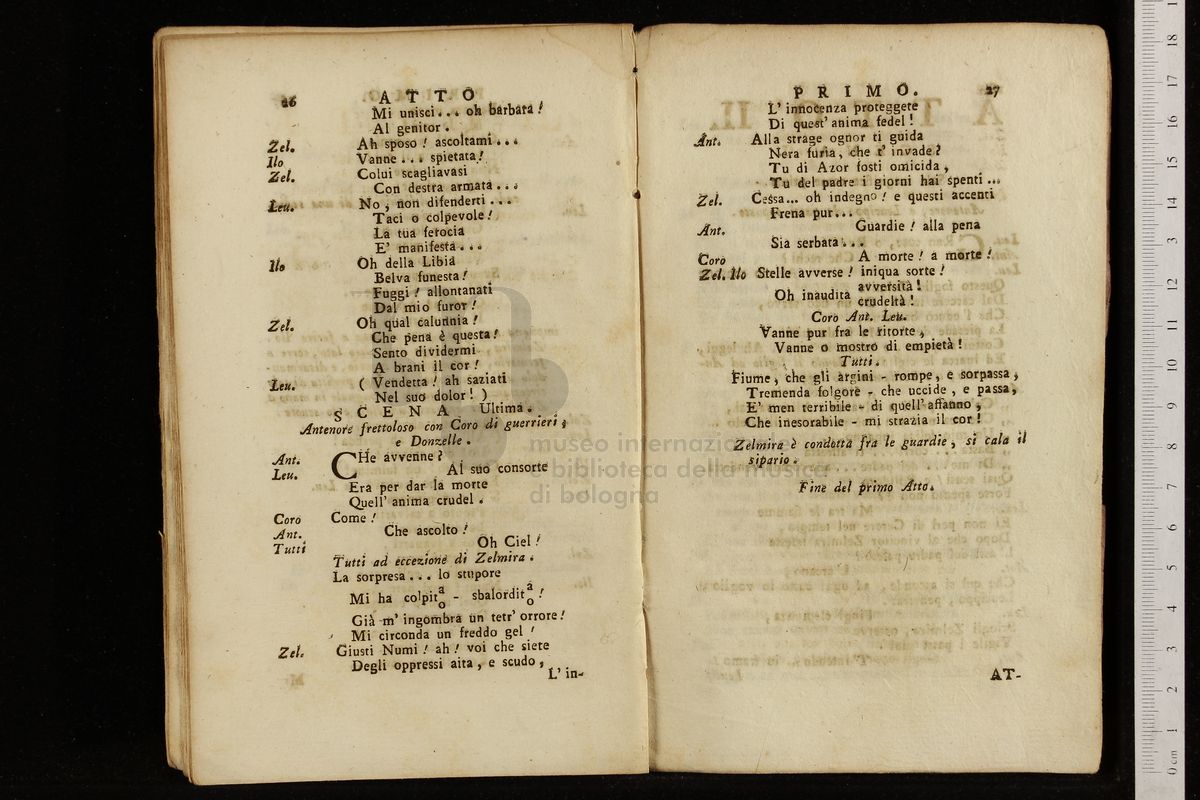 26 ATTO
Mi unisci... oh barbara!
Al genitor.
Zel. Ah sposo! ascoltami...
Ilo Vanne... spietata!
Zel. Colui scagliavasi
Con destra armata...
Leu. No, non difenderti...
Taci o colpevole!
La tua ferocia
E' manifesta...
Ilo Oh della Libia
Belva funesta!
Fuggi! allontanati
Dal mio furor!
Zel. Oh qual calunnia!
Che pena è questa!
Sento dividermi
A brani il cor!
Leu. ( Vendetta! ah saziati
Nel suo dolor! )
SCENA Ultima.
Antenore frettoloso con Coro di guerrieri,
e Donzelle.
Ant. CHe avvenne?
Leu. Al suo consorte
Era per dar la morte
Quell' anima crudel.
Coro Come!
Ant. Che ascolto!
Tutti Oh Ciel!
Tutti ad eccezione di Zelmira.
La sorpresa... lo stupore
Mi ha colpit a/o - sbalordit a/o!
Già m' ingombra un tetr' orrore!
Mi circonda un freddo gel!
Zel. Giusti Numi! ah! voi che siete
Degli oppressi aita, e scudo,
L' in-
PRIMO. 27
L' innocenza proteggete
Di quest' anima fedel!
Ant. Alla strage ognor ti guida
Nera furia, che t' invade?
Tu di Azor fosti omicida,
Tu del padre i giorni hai spenti...
Zel. Cessa... oh indegno! e questi accenti
Frena pur...
Ant. Guardie! alla pena
Sia serbata...
Coro A morte! a morte!
Zel. Ilo Stelle avverse! iniqua sorte!
Oh inaudita avversità!
crudeltà!
Coro Ant. Leu.
Vanne pur fra le ritorte,
Vanne o mostro di empietà!
Tutti.
Fiume, che gli argini - rompe, e sorpassa,
Tremenda folgore - che uccide, e passa,
E' men terribile - di quell' affanno,
Che inesorabile - mi strazia il cor!
Zelmira è condotta fra le guardie, si cala il
sipario.
Fine del primo Atto.
AT-
museo internazionale
e biblioteca della musica
di bologna